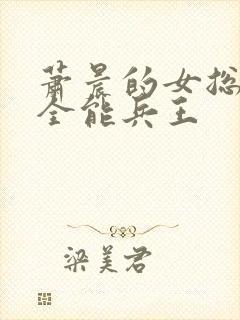 萧晨的女总
全能兵王
梁美君